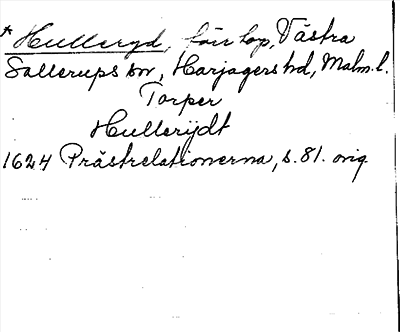 * Hulleryd, förr lop, Västra
Sallerups sn, Harjagers hd, Malm. l.
Torper
Hullerÿdt
1624 Prästrelationerna, s. 81. orig